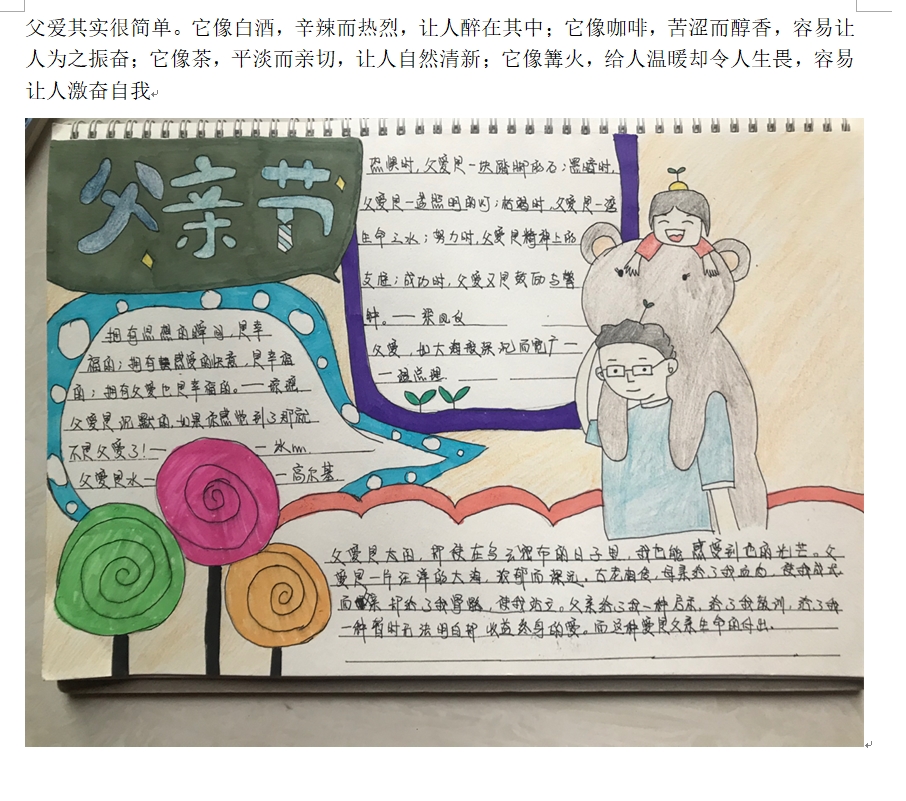 父爱其实很简单。它像白酒，辛辣而热烈，让人醉在其中；它像咖啡，苦涩而醇香，容易让
人为之振奋；它像茶，平淡而亲切，让人自然清新；它像篝火，给人温暖却令人生畏，容易
让人激奋自我
父亲节
恐惧时，父爱是一块踏脚的石；黑暗时，
父爱是一盏照明的灯；枯竭时，父爱是一湾
生命之水；努力时，父爱是精神上的
支庭；成功时，父爱又是鼓励与警
钟。——梁凤仪
父爱，如大海般深沉而宽广—
拥有思想的瞬间，是幸
福的；拥有感受的快意，是幸福
的；拥有父爱也是幸福的。——
父爱是沉默的，如果你感觉到了那就
不是父爱了！— —冰心
父爱是水— —高尔基
父爱是太阳，即使在乌云密布的日子里，我也能感受到他的光芒。父
爱是一片汪洋的大海，浓郁而深远。母亲给了我血肉，使我成长
而父亲却给了我骨骼，使我站立。父亲给了我一种启示，给了我教训，给了我
一种暂时无法明白却收益终身的爱。而这种爱是父亲生命的付出.